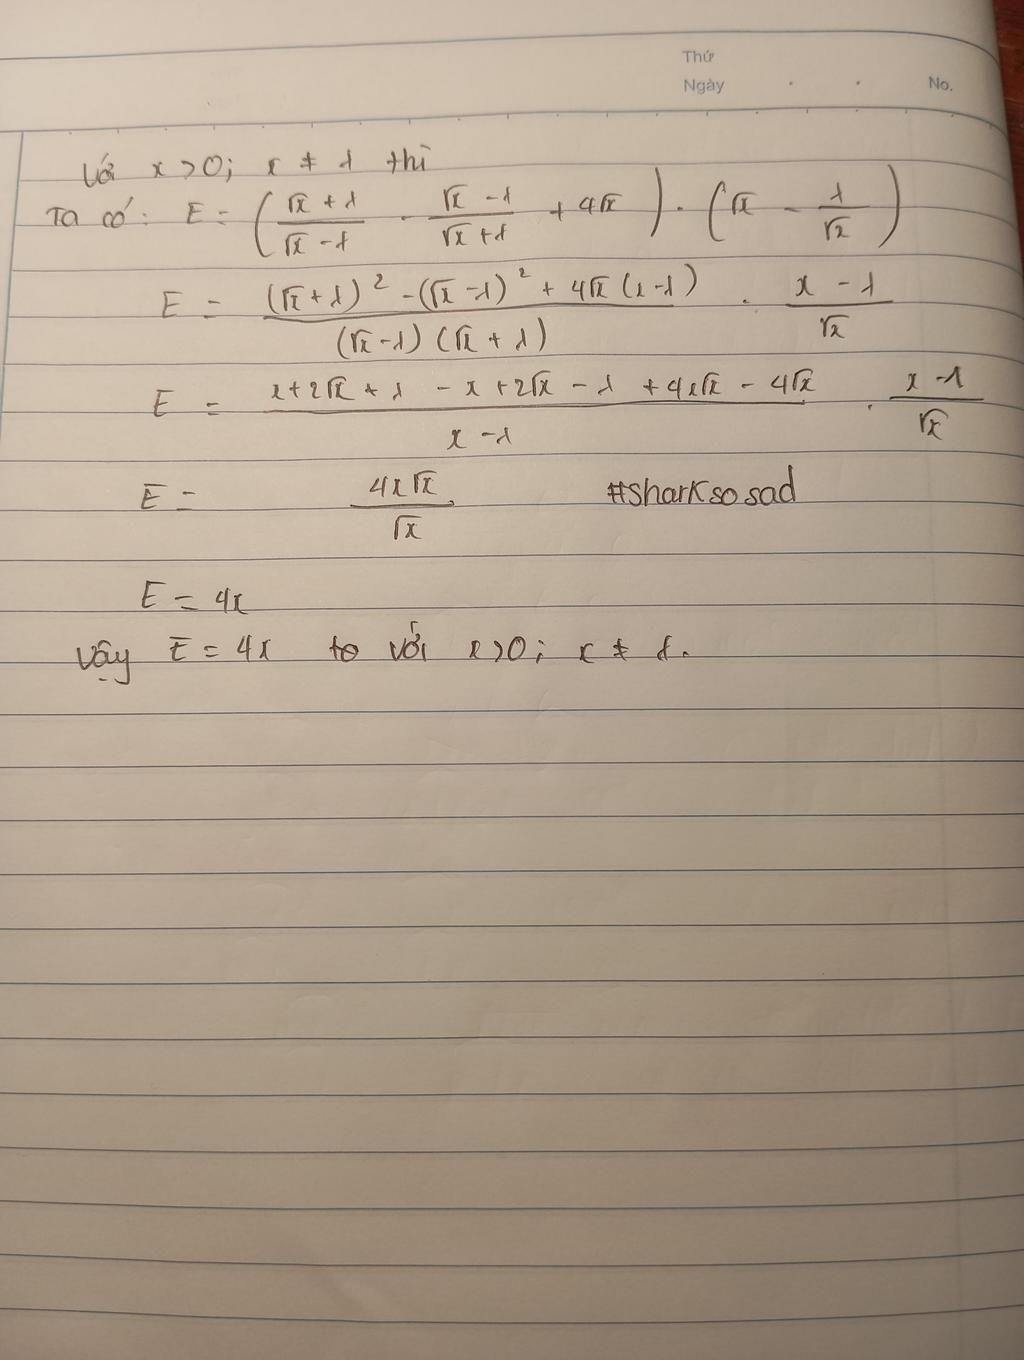 Thứ
Ngày . . No.
Với x > 0; x ≠ 1 thì
Ta có: E = ( (√x + 1)/(√x - 1) - (√x - 1)/(√x + 1) + 4√x ) . ( √x - 1/√x )
E = ((√x + 1)² - (√x - 1)² + 4√x (x - 1))/((√x - 1)(√x + 1)) . (x - 1)/√x
E = (x + 2√x + 1 - x + 2√x - 1 + 4x√x - 4√x)/(x - 1) . (x - 1)/√x
E = 4x√x/√x #sharksosad
E = 4x
Vậy E = 4x với x > 0; x ≠ 1.